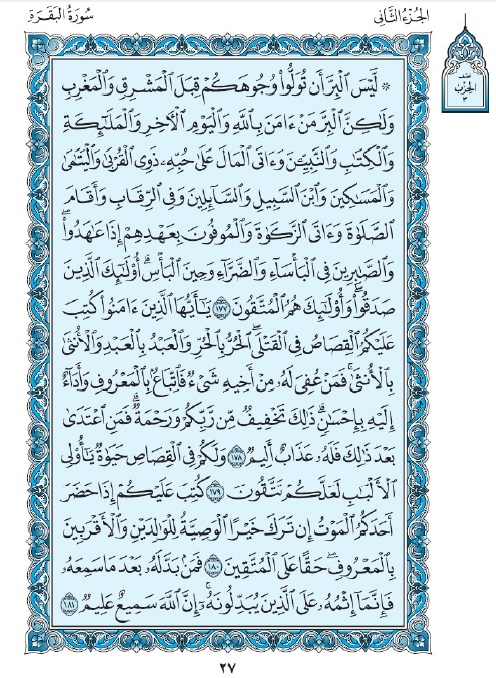 سُورَةُ البَقَرَةِ الجُزْءُ الثَّانِي
نصف
الحزب
٣
۞ لَّيْسَ الْبِرَّ أَن تُوَلُّوا وُجُوهَكُمْ قِبَلَ الْمَشْرِقِ وَالْمَغْرِبِ
وَلَٰكِنَّ الْبِرَّ مَنْ ءَامَنَ بِاللَّهِ وَالْيَوْمِ الْآخِرِ وَالْمَلَٰٓئِكَةِ
وَالْكِتَٰبِ وَالنَّبِيِّۦنَ وَءَاتَى الْمَالَ عَلَىٰ حُبِّهِۦ ذَوِي الْقُرْبَىٰ وَالْيَتَٰمَىٰ
وَالْمَسَٰكِينَ وَابْنَ السَّبِيلِ وَالسَّآئِلِينَ وَفِي الرِّقَابِ وَأَقَامَ
الصَّلَوٰةَ وَءَاتَى الزَّكَوٰةَ وَالْمُوفُونَ بِعَهْدِهِمْ إِذَا عَٰهَدُوا ۖ
وَالصَّٰبِرِينَ فِي الْبَأْسَآءِ وَالضَّرَّآءِ وَحِينَ الْبَأْسِ ۗ أُولَٰٓئِكَ الَّذِينَ
صَدَقُوا ۖ وَأُولَٰٓئِكَ هُمُ الْمُتَّقُونَ ١٧٧ يَٰٓأَيُّهَا الَّذِينَ ءَامَنُوا كُتِبَ
عَلَيْكُمُ الْقِصَاصُ فِي الْقَتْلَى ۖ الْحُرُّ بِالْحُرِّ وَالْعَبْدُ بِالْعَبْدِ وَالْأُنثَىٰ
بِالْأُنثَىٰ ۚ فَمَنْ عُفِيَ لَهُۥ مِنْ أَخِيهِ شَيْءٌ فَاتِّبَاعٌۢ بِالْمَعْرُوفِ وَأَدَآءٌ
إِلَيْهِ بِإِحْسَٰنٍ ۗ ذَٰلِكَ تَخْفِيفٌ مِّن رَّبِّكُمْ وَرَحْمَةٌ ۗ فَمَنِ اعْتَدَىٰ
بَعْدَ ذَٰلِكَ فَلَهُۥ عَذَابٌ أَلِيمٌ ١٧٨ وَلَكُمْ فِي الْقِصَاصِ حَيَوٰةٌ يَٰٓأُولِي
الْأَلْبَٰبِ لَعَلَّكُمْ تَتَّقُونَ ١٧٩ كُتِبَ عَلَيْكُمْ إِذَا حَضَرَ
أَحَدَكُمُ الْمَوْتُ إِن تَرَكَ خَيْرًا الْوَصِيَّةُ لِلْوَٰلِدَيْنِ وَالْأَقْرَبِينَ
بِالْمَعْرُوفِ ۖ حَقًّا عَلَى الْمُتَّقِينَ ١٨٠ فَمَنۢ بَدَّلَهُۥ بَعْدَ مَا سَمِعَهُۥ
فَإِنَّمَآ إِثْمُهُۥ عَلَى الَّذِينَ يُبَدِّلُونَهُۥٓ ۚ إِنَّ اللَّهَ سَمِيعٌ عَلِيمٌ ١٨١
٢٧